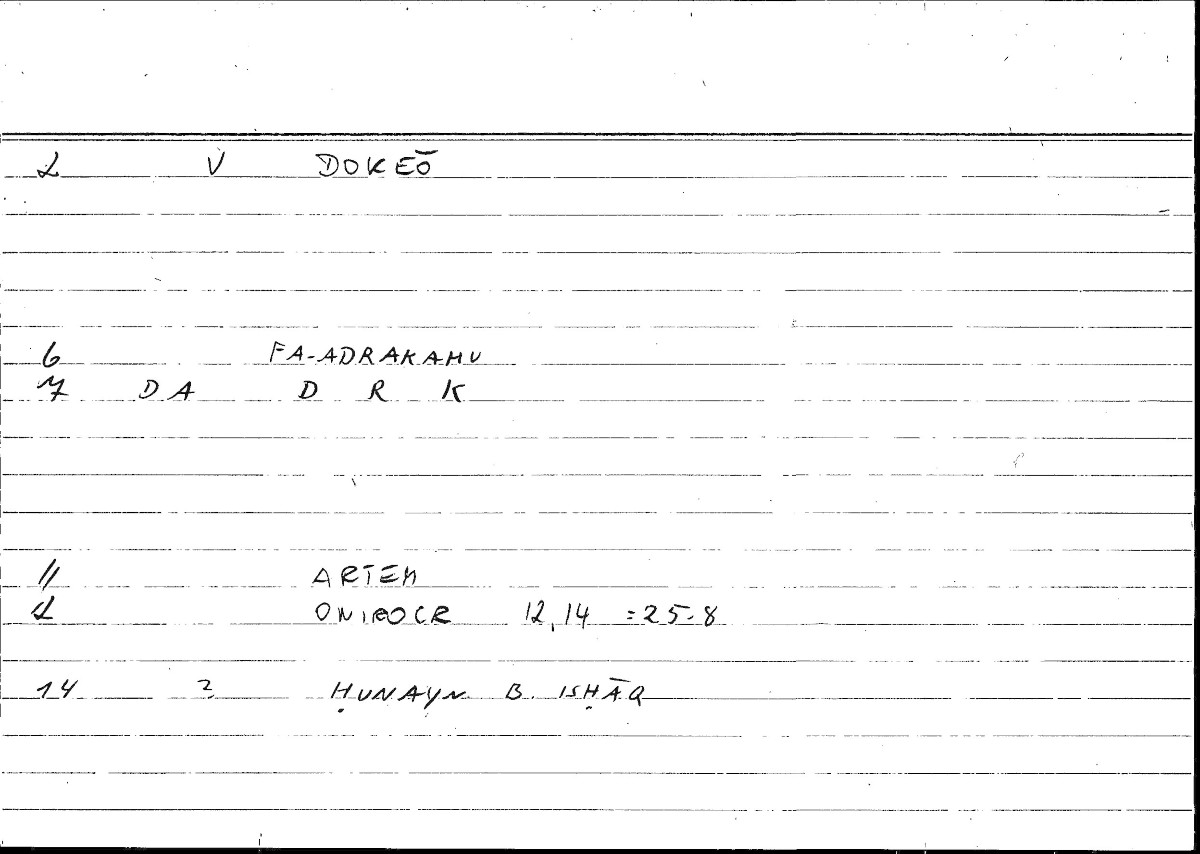 2 V DOKEŌ
6 FA-ADRAKAHU
7 DA D R K
11 ARTEM
12 ONIROCR 12,14 =25-8
14 2 ḤUNAYN B. ISḤĀQ